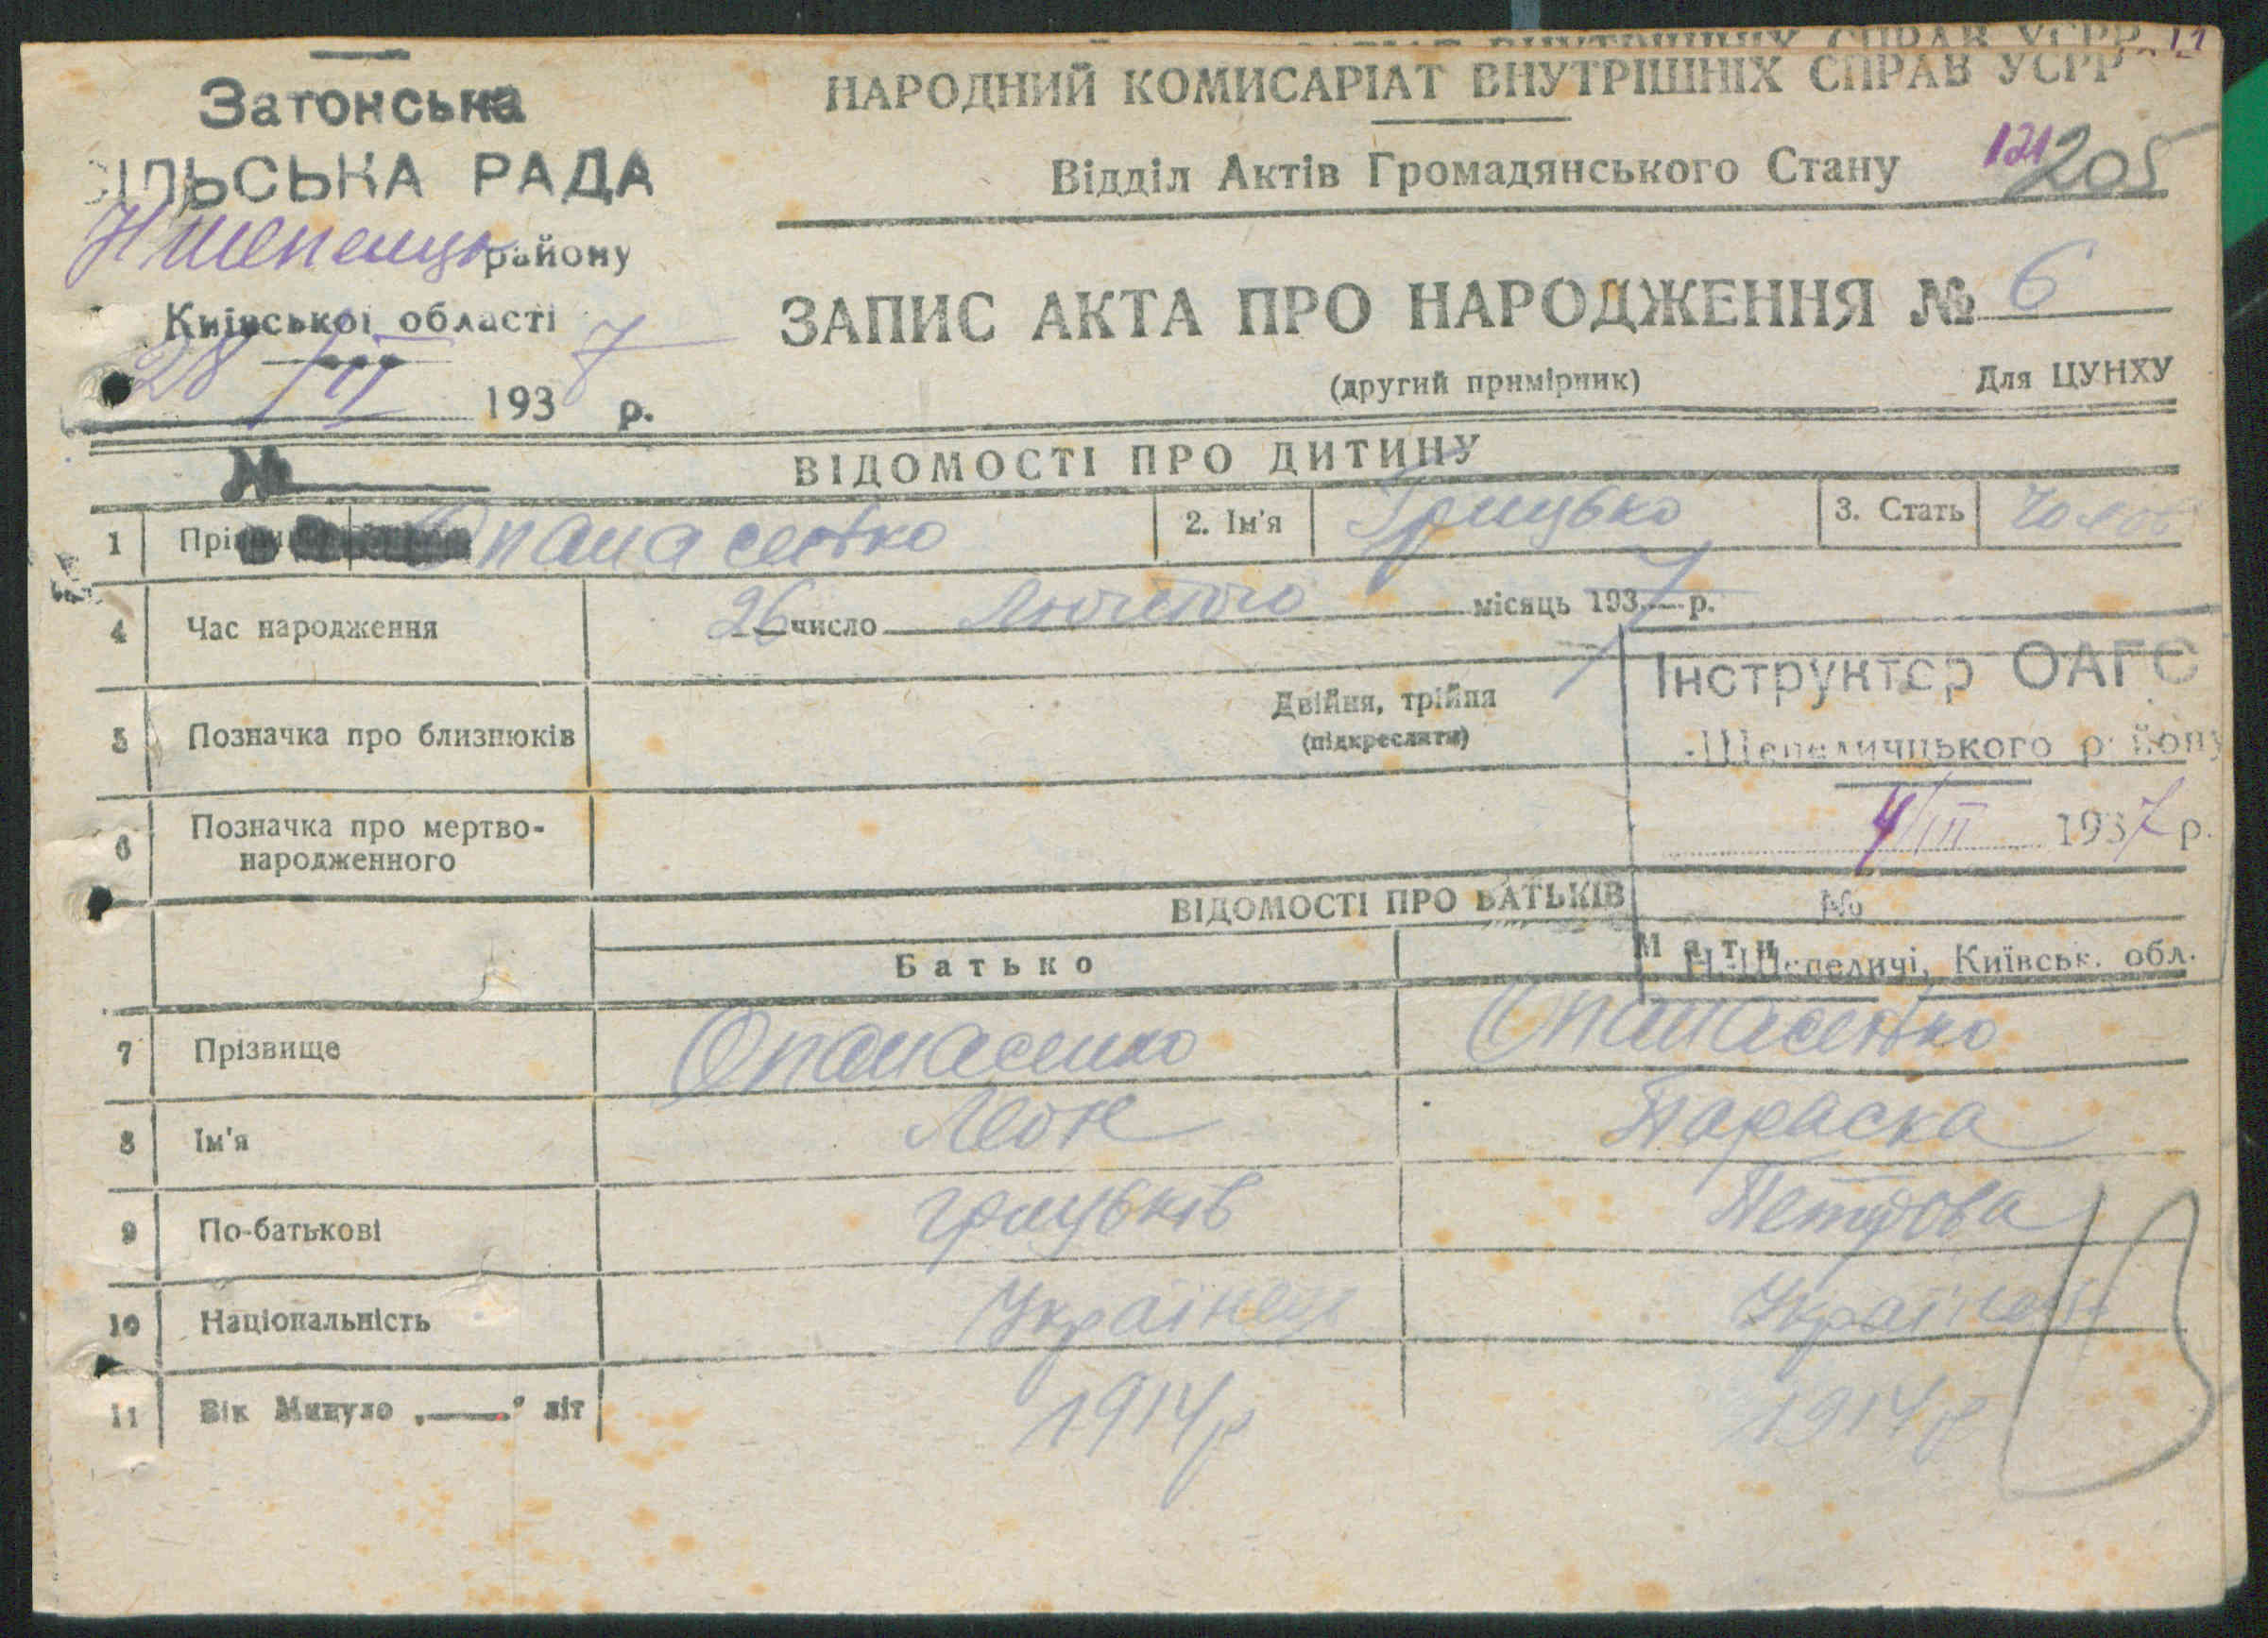 Затонська
СІЛЬСЬКА РАДА
району
Київської області
28/II 1937 р.
№
НАРОДНИЙ КОМИСАРІАТ ВНУТРІШНІХ СПРАВ УСРР
Відділ Актів Громадянського Стану
121 205
ЗАПИС АКТА ПРО НАРОДЖЕННЯ № 6
(другий примірник) Для ЦУНХУ
ВІДОМОСТІ ПРО ДИТИНУ
1 Прізвище Опанасенко 2. Ім'я Грицько 3. Стать Чолов
4 Час народження 26 число Лютого місяць 1937 р.
5 Позначка про близнюків Двійня, трійня
(підкреслити)
Інструктор ОАГС
Шепеличцького району
4/III 1937 р.
№
Н-Шепеличі, Київськ. обл.
6 Позначка про мертво-
народженного
ВІДОМОСТІ ПРО БАТЬКІВ
Батько Мати
7 Прізвище Опанасенко Опанасенко
8 Ім'я Леон Параска
9 По-батькові Грицьків Петрова
10 Національність Українець Українка
11 Вік Минуло „ " літ 1914 р 1914 р